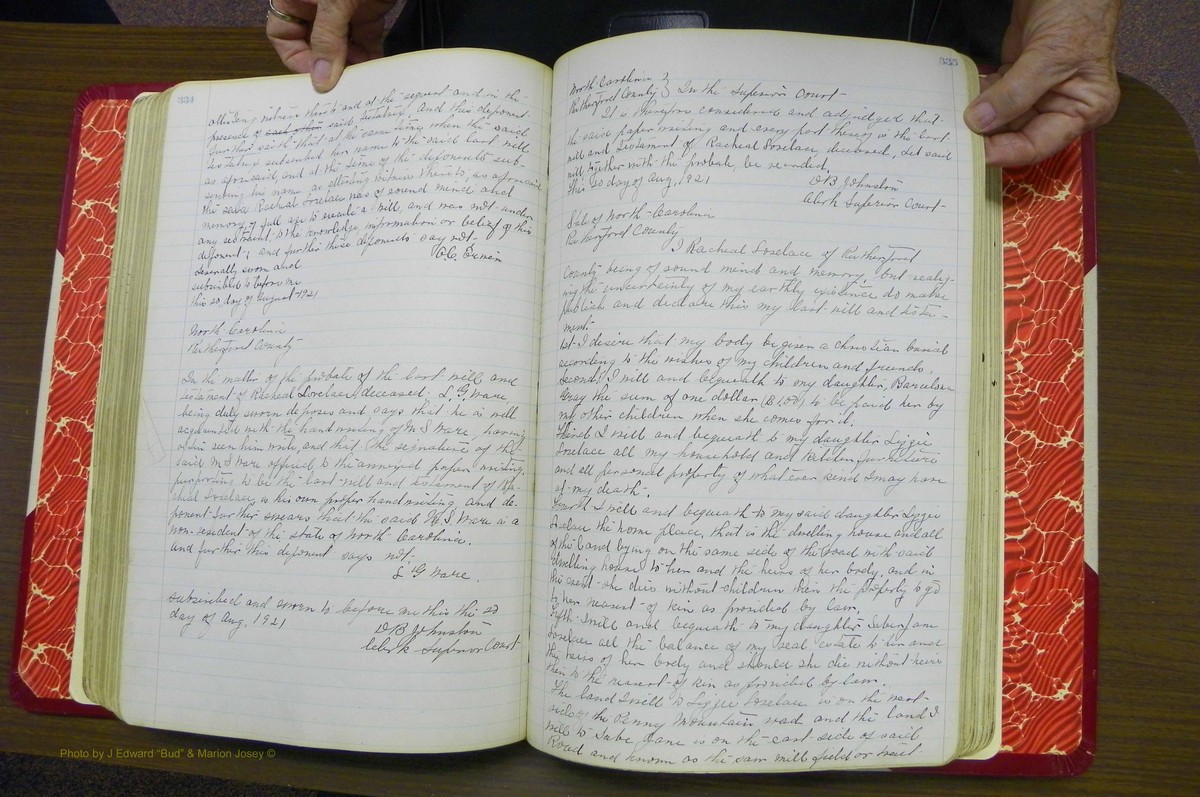 334
attesting witness thereto and at the request and in the
presence of said other said testatrix. And this deponent
further saith that at the same time when the said
testatrix subscribed her name to the said last will
as aforesaid and at the time of the deponents sub-
scribing his name as attesting witness thereto, as aforesaid
the said Racheal Lovelace was of sound mind and
memory, of full age to execute a will, and was not under
any restraint to the knowledge, information or belief of this
deponent; and further these deponents say not.
Severally sworn and
subscribed to before me
this 20, day of August 1921
North Carolina
Rutherford County
In the matter of the probate of the last will and
testament of Racheal Lovelace, deceased, L. G Ware,
being duly sworn deposes and says that he is well
acquainted with the hand writing of M S Ware, having
often seen him write, and that the signature of the
said M S Ware affixed to the annexed paper writing,
purporting to be the last will and testament of Ra-
cheal Lovelace, is his own proper handwriting and de-
ponent further swears that the said M. S. Ware is a
non-resident of the state of North Carolina.
and further this deponent says not.
L G Ware.
subscribed and sworn to before me this the 20
day of Aug. 1921
O B Johnston
Clerk Superior Court
335
North Carolina
Rutherford County } In the Superior Court
It is therefore considered and adjudged that
the said paper writing and every part thereof is the last
will and testament of Racheal Lovelace, deceased, let said
will together with the probate, be recorded,
This 20 day of Aug, 1921
O B Johnston
Clerk Superior Court
State of North Carolina
Rutherford County
I Racheal Lovelace of Rutherford
County being of sound mind and memory, but realiz-
ing the uncertainty of my earthly existence do make
publish and declare this my last will and testa-
ment.
1st. I desire that my body be given a christian burial
according to the wishes of my children and friends.
Second! I will and bequeath to my daughter,
Gray the sum of one dollar ($1.00) to be paid her by
my other children when she comes for it.
Third I will and bequeath to my daughter Lizzie
Lovelace all my household and kitchen furniture
and all personal property of whatever kind I may have
at my death.
Fourth I will and bequeath to my said daughter Lizzie
Lovelace the home place, that is the dwelling house and all
of the land lying on the same side of the road with said
dwelling house to her and the heirs of her body, and in
the event she dies without children then the property to go
to her nearest of kin as provided by law,
Fifth I will and bequeath to my daughter Jane
Lovelace all the balance of my real estate to her and
the heirs of her body and should she die without heirs
then to the nearest of kin as provided by law.
The land I will to Lizzie Lovelace is on the west
side of the Piney Mountain road and the land I
will to Jane is on the east side of said
Road and known as the saw mill field or tract
Photo by J Edward "Bud" & Marion Josey ©